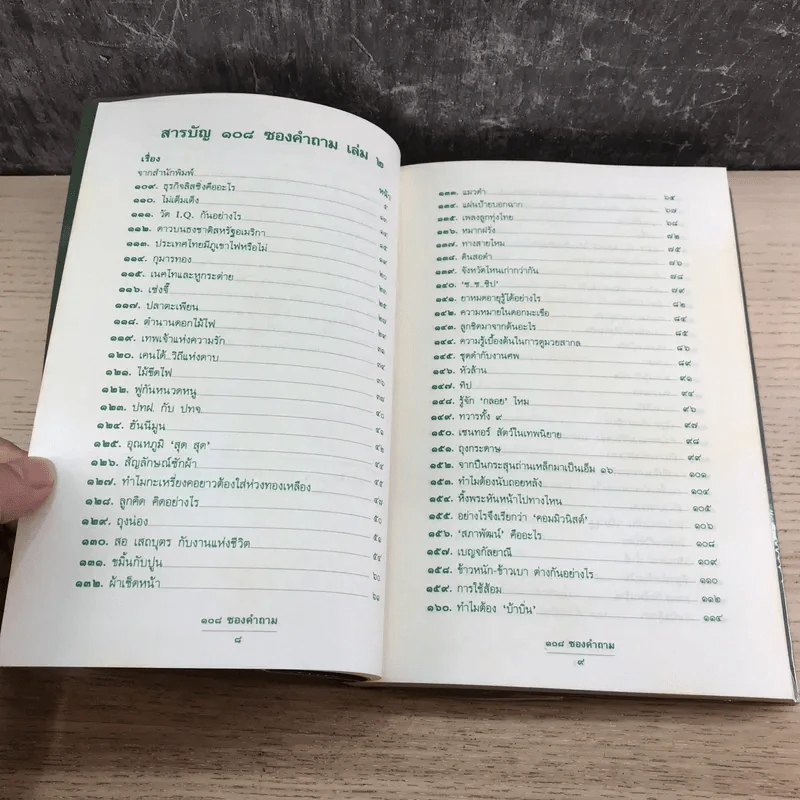 สารบัญ ๑๐๘ ซองคำถาม เล่ม ๒
เรื่อง หน้า
จากสำนักพิมพ์
๑๐๙. ธุรกิจลิสซิ่งคืออะไร
๑๑๐. ไม่เต็มเต็ง
๑๑๑. วัด I.Q. กันอย่างไร
๑๑๒. ดาวบนธงชาติสหรัฐอเมริกา
๑๑๓. ประเทศไทยมีภูเขาไฟหรือไม่
๑๑๔. กุมารทอง
๑๑๕. เนคไทและหูกระต่าย
๑๑๖. เซ่งจี๊
๑๑๗. ปลาตะเพียน
๑๑๘. ตำนานดอกไม้ไฟ
๑๑๙. เทพเจ้าแห่งความรัก ๓๑
๑๒๐. เคนโด้...วิถีแห่งดาบ ๓๔
๑๒๑. ไม้ขีดไฟ ๓๖
๑๒๒. พู่กันหนวดหนู ๓๗
๑๒๓. ปทฝ. กับ ปทจ. ๔๐
๑๒๔. ฮันนีมูน ๔๑
๑๒๕. อุณหภูมิ 'สุด สุด' ๔๒
๑๒๖. สัญลักษณ์ซักผ้า ๔๕
๑๒๗. ทำไมกะเหรี่ยงคอยาวต้องใส่ห่วงทองเหลือง ๔๗
๑๒๘. ลูกคิด คิดอย่างไร ๕๐
๑๒๙. ถุงน่อง ๕๑
๑๓๐. สอ เสถบุตร กับงานแห่งชีวิต ๕๔
๑๓๑. ขมิ้นกับปูน ๖๐
๑๓๒. ผ้าเช็ดหน้า ๖๑
๑๐๘ ซองคำถาม
๘
๑๓๓. แมวดำ ๖๕
๑๓๔. แผ่นป้ายบอกฉาก ๖๗
๑๓๕. เพลงลูกทุ่งไทย ๖๘
๑๓๖. หมากฝรั่ง ๗๒
๑๓๗. ทางสายไหม ๗๕
๑๓๘. ดินสอดำ ๗๘
๑๓๙. จังหวัดไหนเก่ากว่ากัน ๗๙
๑๔๐. 'ช..ช..ชิป' ๘๒
๑๔๑. ยาหมดอายุรู้ได้อย่างไร ๘๔
๑๔๒. ความหมายในดอกมะเขือ ๘๕
๑๔๓. ลูกชิดมาจากต้นอะไร ๘๖
๑๔๔. ความรู้เบื้องต้นในการดูมวยสากล ๘๙
๑๔๕. ชุดดำกับงานศพ ๙๑
๑๔๖. หัวล้าน ๙๔
๑๔๗. ทิป ๙๖
๑๔๘. รู้จัก 'กลอย' ไหม ๙๗
๑๔๙. ทวารทั้ง ๙ ๙๘
๑๕๐. เซนทอร์ สัตว์ในเทพนิยาย ๙๙
๑๕๑. ถุงกระดาษ ๑๐๑
๑๕๒. จากปืนกระสุนถ่านเหล็กมาเป็นเอ็ม ๑๖ ๑๐๔
๑๕๓. ทำไมต้องนับถอยหลัง ๑๐๕
๑๕๔. หิ้งพระหันหน้าไปทางไหน ๑๐๖
๑๕๕. อย่างไรจึงเรียกว่า 'คอมมิวนิสต์' ๑๐๘
๑๕๖. 'สภาพัฒน์' คืออะไร ๑๐๙
๑๕๗. เบญจกัลยาณี ๑๑๐
๑๕๘. ข้าวหนัก-ข้าวเบา ต่างกันอย่างไร ๑๑๒
๑๕๙. การใช้ส้อม ๑๑๔
๑๖๐. ทำไมต้อง 'บ้าบิ่น'
๑๐๘ ซองคำถาม
๙